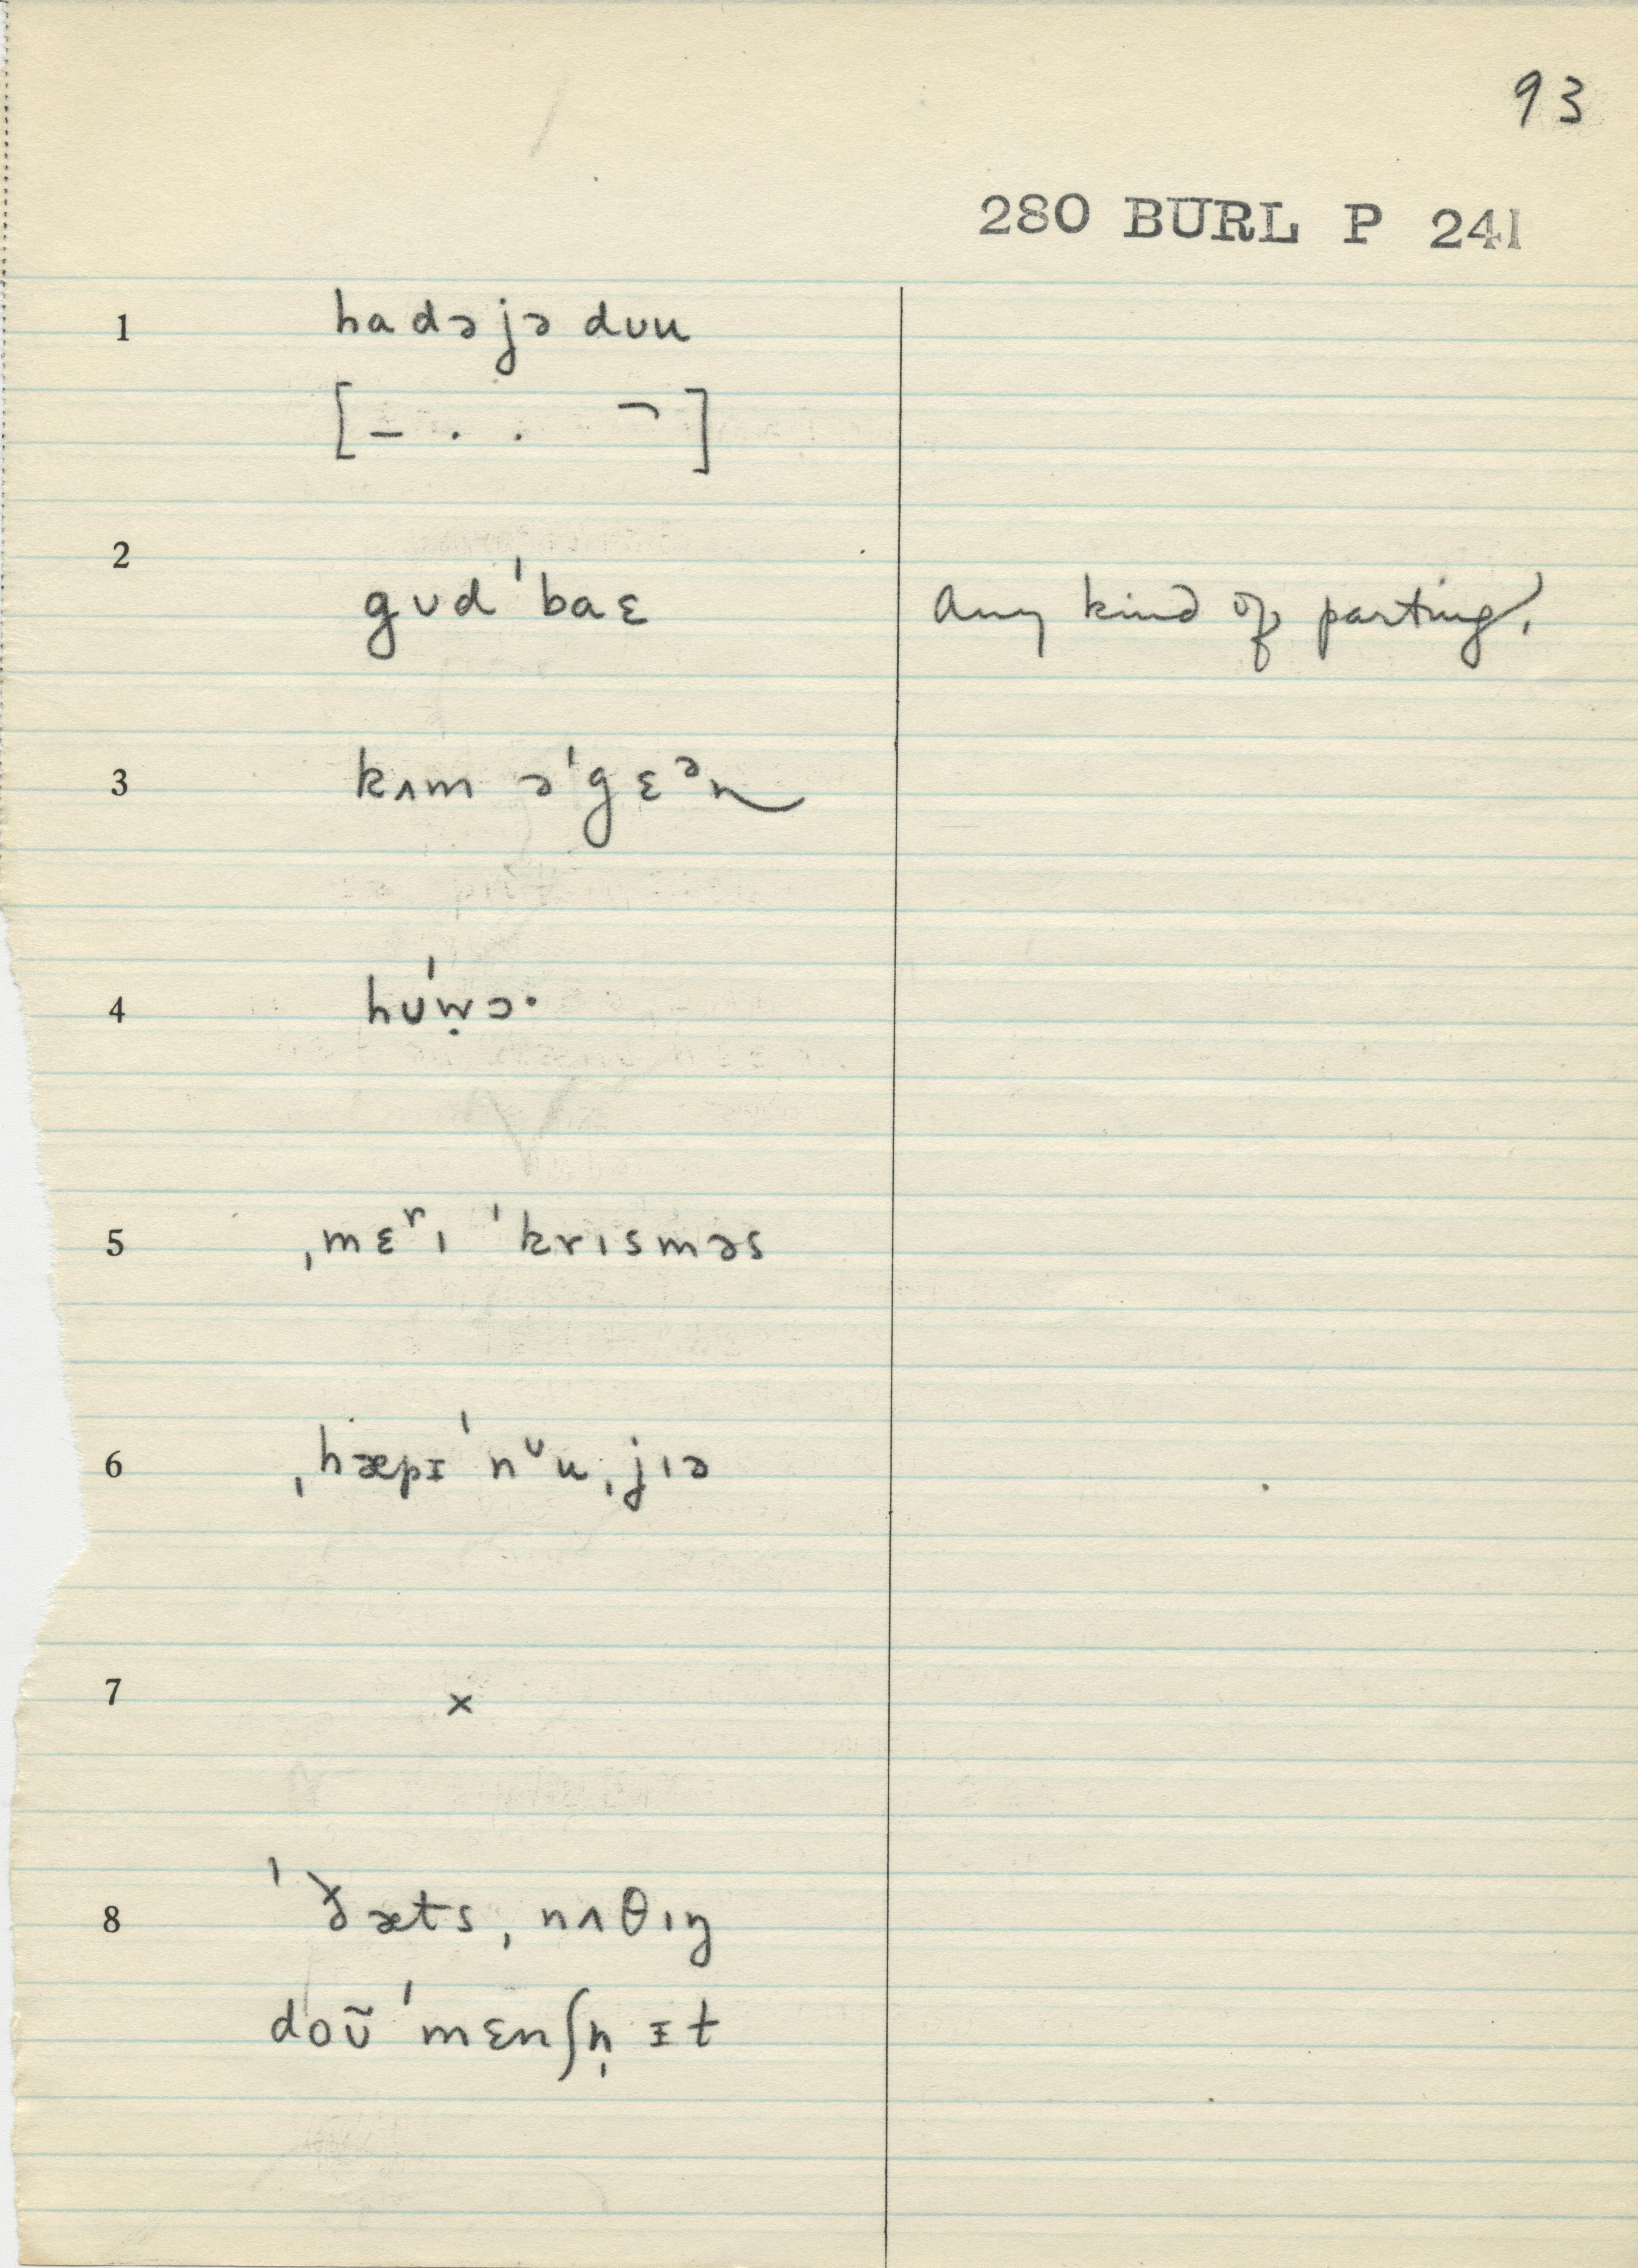 93
280 BURL P 241
1 hadəjə dʊu
[– · · ¬]
2 gʊdˈbaɛ Any kind of parting.
3 kʌm əˈgɛᵊn
4 hʊˈẉɔ·
5 ˌmɛʳı ˈkrısməs
6 ˌhæpɪˈnᶷuˌjıə
7 x
8 ˈðætsˌnʌθıŋ
doʊ̃ˈmɛnʃn̩ ɪt